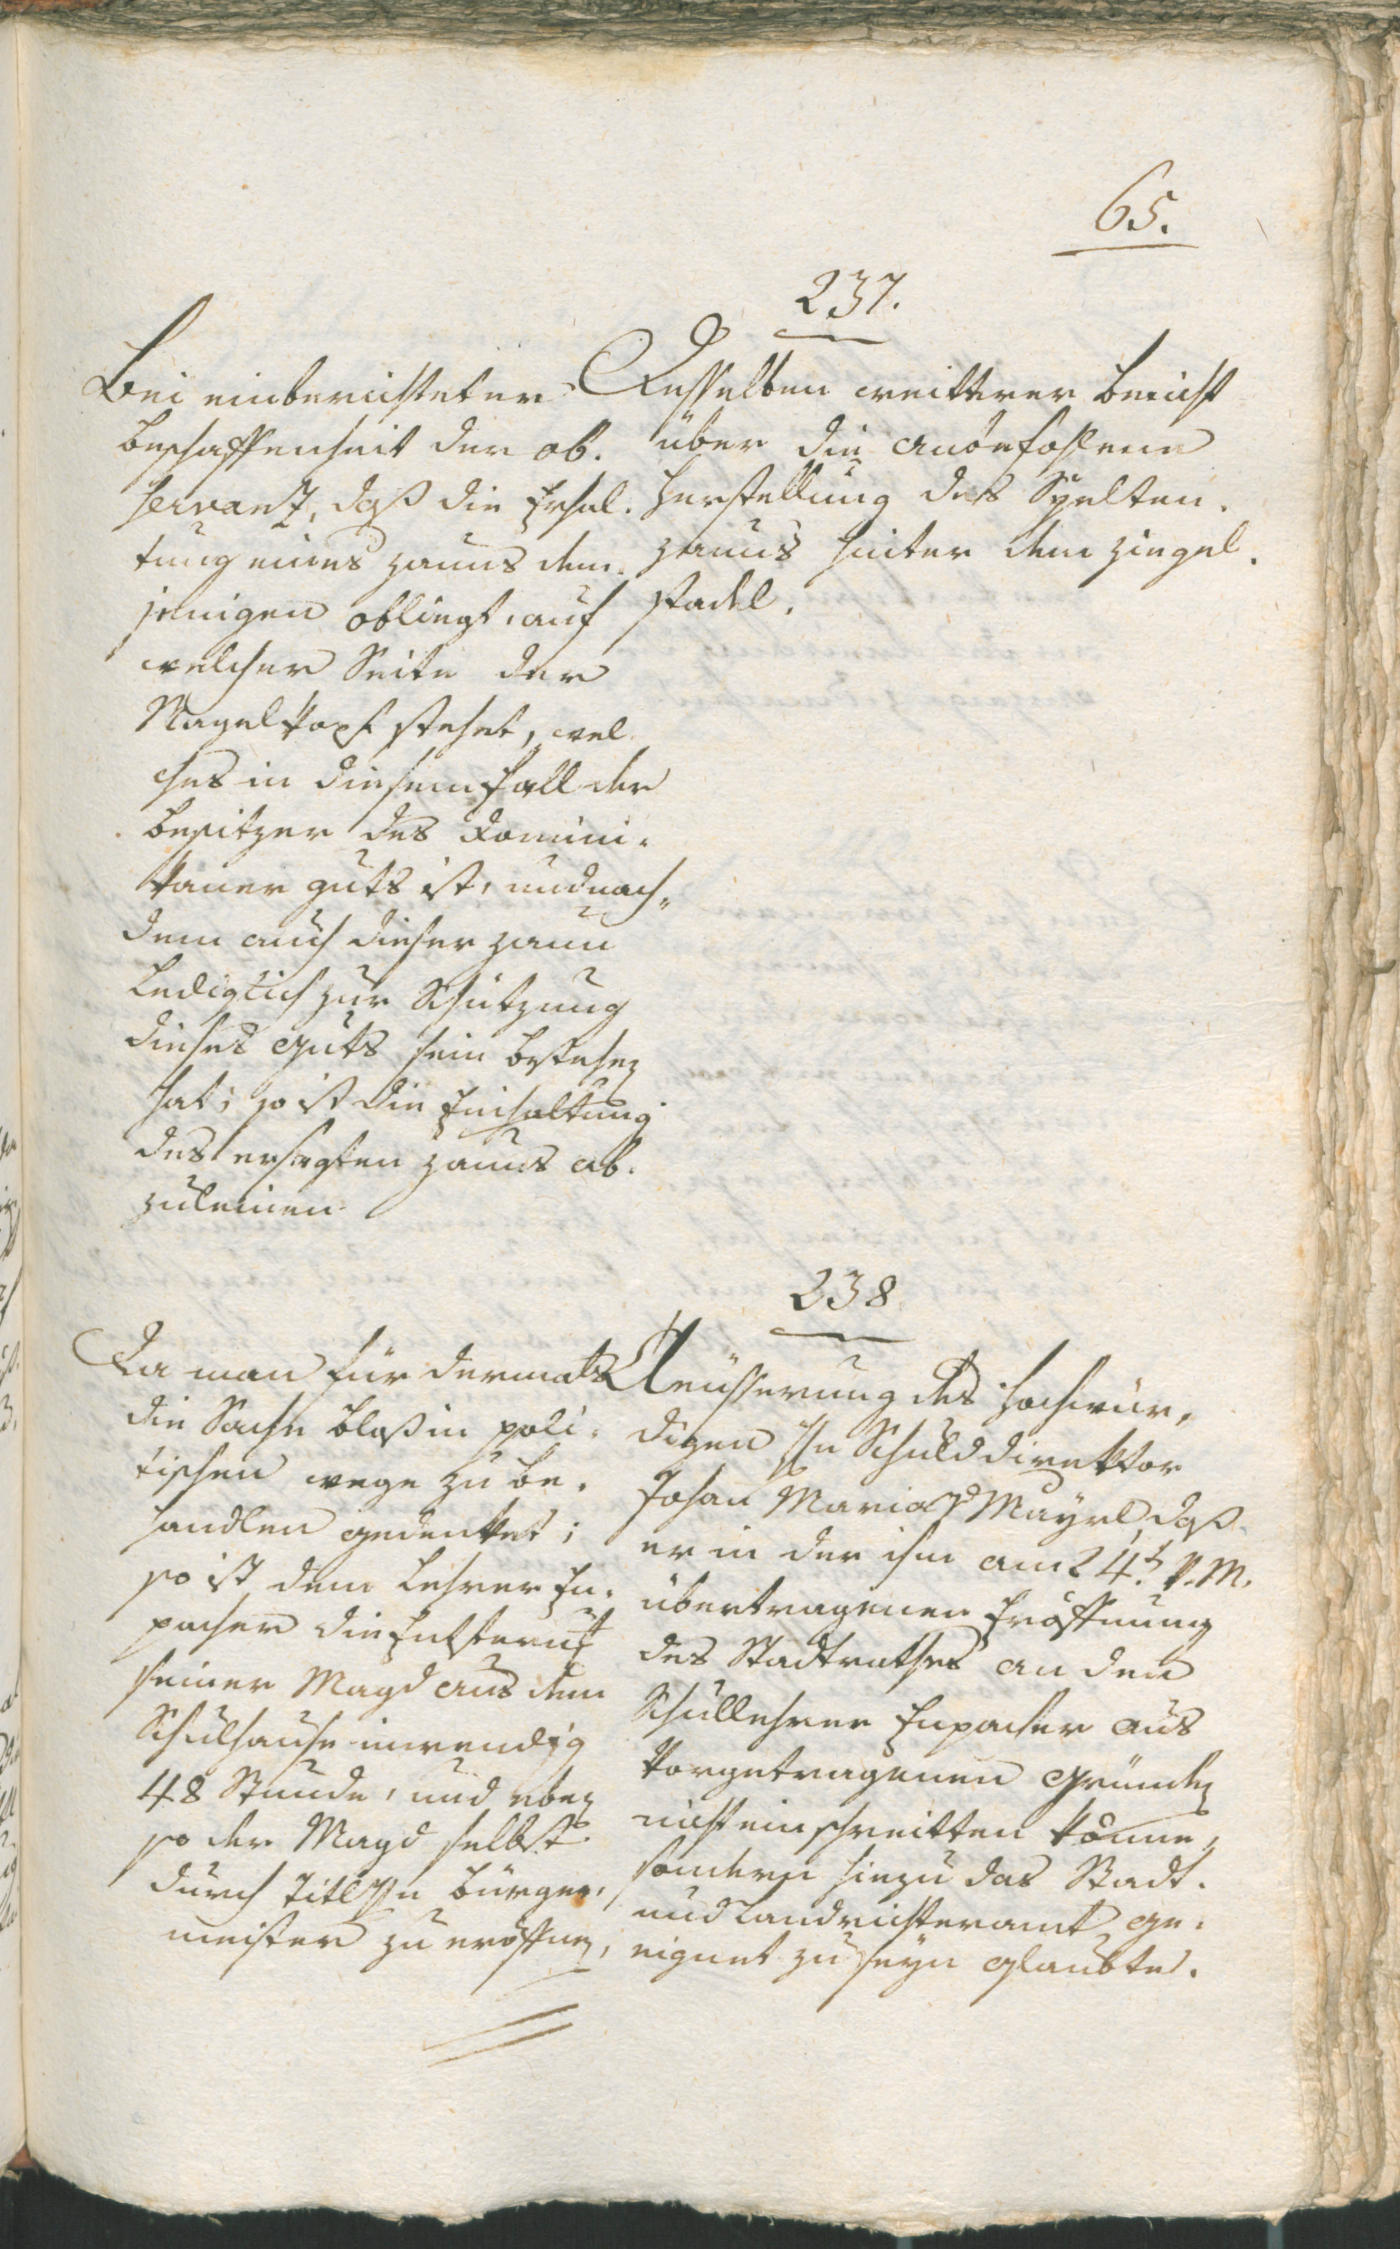 65.
237.
Bei einberichteter
Beschaffenheit der ob-
servanz, daß die Erhal-
tung eines Zauns dem-
jenigen obliegt, auf
welcher Seite der
Nagelkopf stehet, wel
ches in diesem Fall der
Besitzer des Domini-
kaner Guts ist, und nach-
dem auch dieser Zaun
Lediglich zur Schützung
dieses Guts sein bestehen
hat; so ist die Einhaltung
des ersagten Zauns ab-
zuleinen
Desselben weitterer Bericht
über die anbefohlene
Herstellung des Spelten-
zauns hinter dem Ziegel-
stadel.
238
Da man für dermals
die Sache bloß in poli-
tischen wege zu be-
handlen gedenket;
so ist dem Lehrer En-
pacher die
seiner Magd aus dem
Schulhause inwendig
48 Stunde, und eben
so der Magd selbst
durch Titl Hn Bürger-
meister zu eröffnen,
Aeüsserung des Hochwür-
digen Hn Schuldirektor
Johan Maria Mayrl, daß
er in der ihm am 24t. v. M.
übertragenen Eröffnung
des Stadtrathes an den
Schullehrer Enpacher aus
vorgetragenen Gründen
nicht einschreitten könne,
sondern hiezu das Stadt-
und Landrichteramt ge-
eignet zu seyn glaubte.